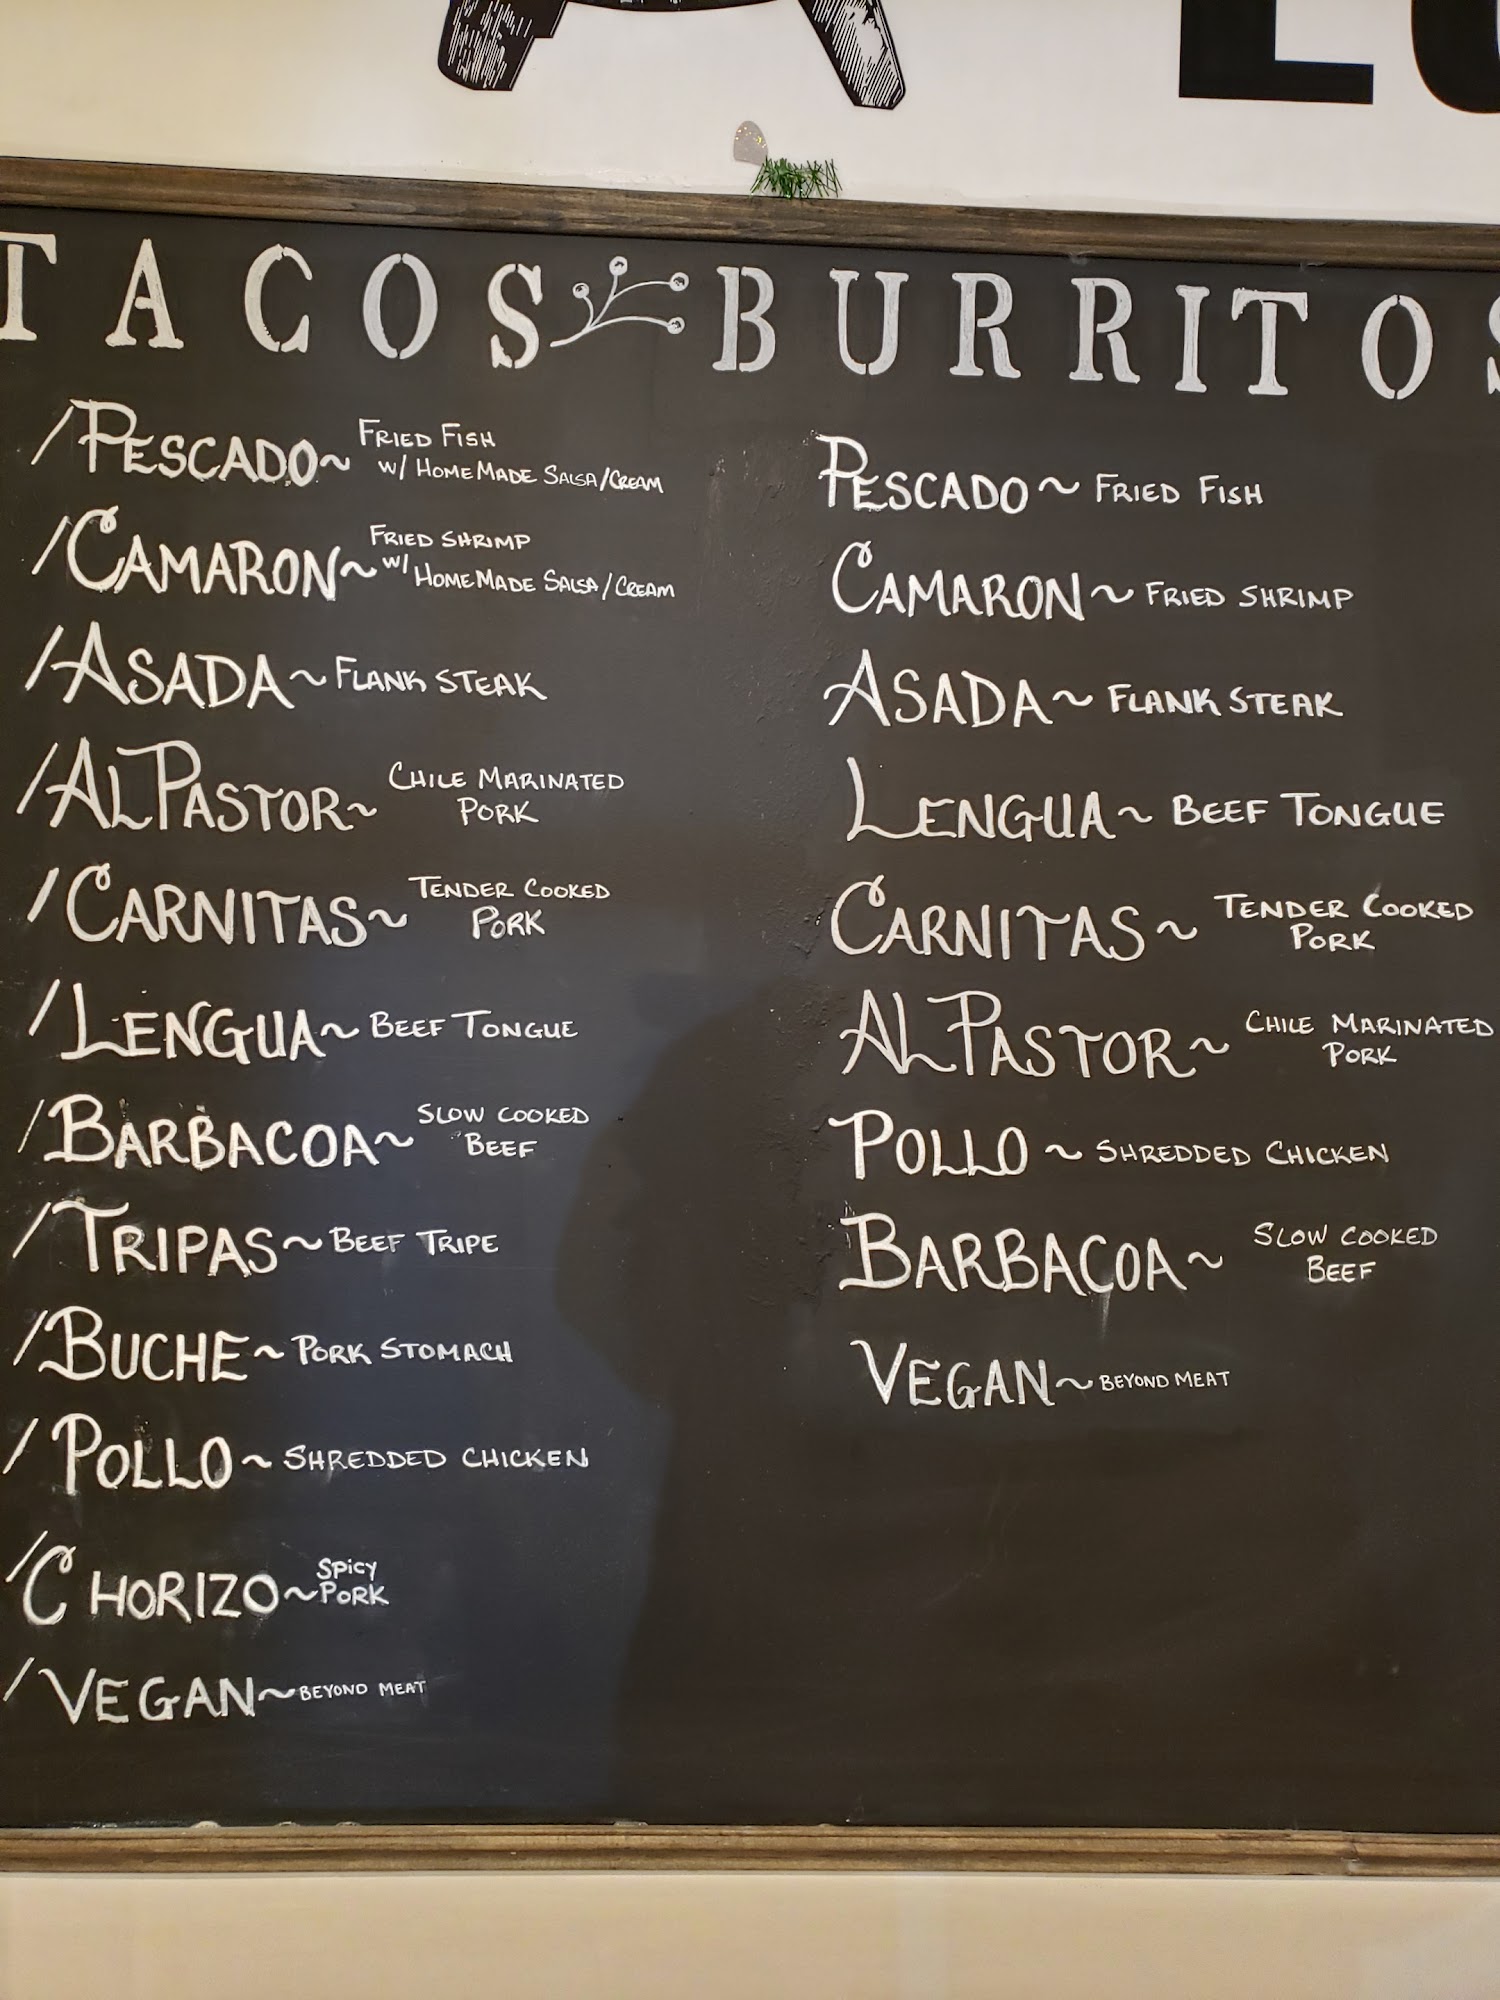 TACOS BURRITOS
/PESCADO~ FRIED FISH
W/ HOMEMADE SALSA/CREAM
/CAMARON~ FRIED SHRIMP
W/ HOMEMADE SALSA/CREAM
/ASADA~ FLANK STEAK
/AL PASTOR~ CHILE MARINATED
PORK
/CARNITAS~ TENDER COOKED
PORK
/LENGUA~ BEEF TONGUE
/BARBACOA~ SLOW COOKED
BEEF
/TRIPAS~ BEEF TRIPE
/BUCHE~ PORK STOMACH
/POLLO~ SHREDDED CHICKEN
/CHORIZO~ SPICY
PORK
/VEGAN~ BEYOND MEAT
PESCADO~ FRIED FISH
CAMARON~ FRIED SHRIMP
ASADA~ FLANK STEAK
LENGUA~ BEEF TONGUE
CARNITAS~ TENDER COOKED
PORK
AL PASTOR~ CHILE MARINATED
PORK
POLLO~ SHREDDED CHICKEN
BARBACOA~ SLOW COOKED
BEEF
VEGAN~ BEYOND MEAT